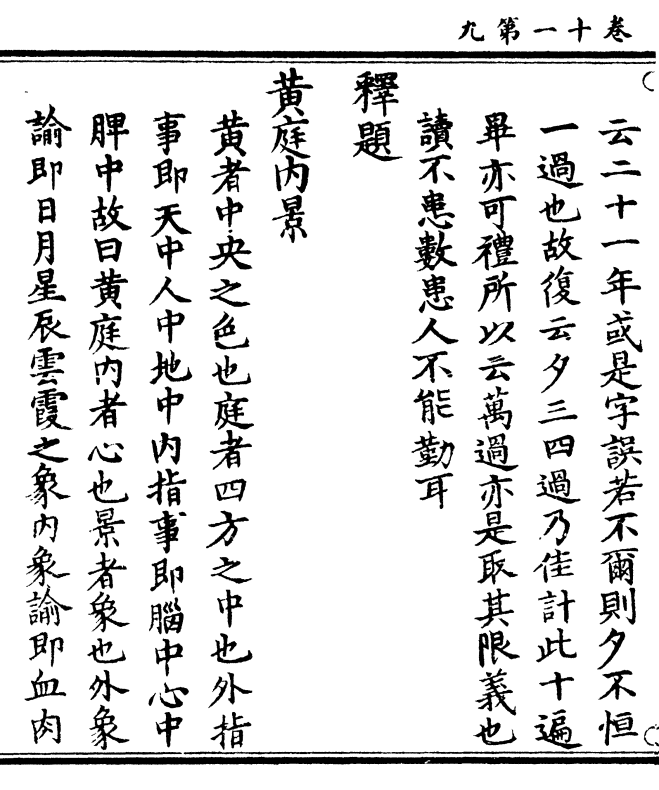 卷十一第九
云二十一年或是字誤若不爾則夕不恒
一過也故復云夕三四過乃佳計此十遍
畢亦可禮所以云萬過亦是取其限義也
讀不患數患人不能勤耳
釋題
黃庭內景
黃者中央之色也庭者四方之中也外指
事即天中人中地中內指事即腦中心中
脾中故曰黃庭內者心也景者象也外象
諭即日月星辰雲霞之象內象諭即血肉